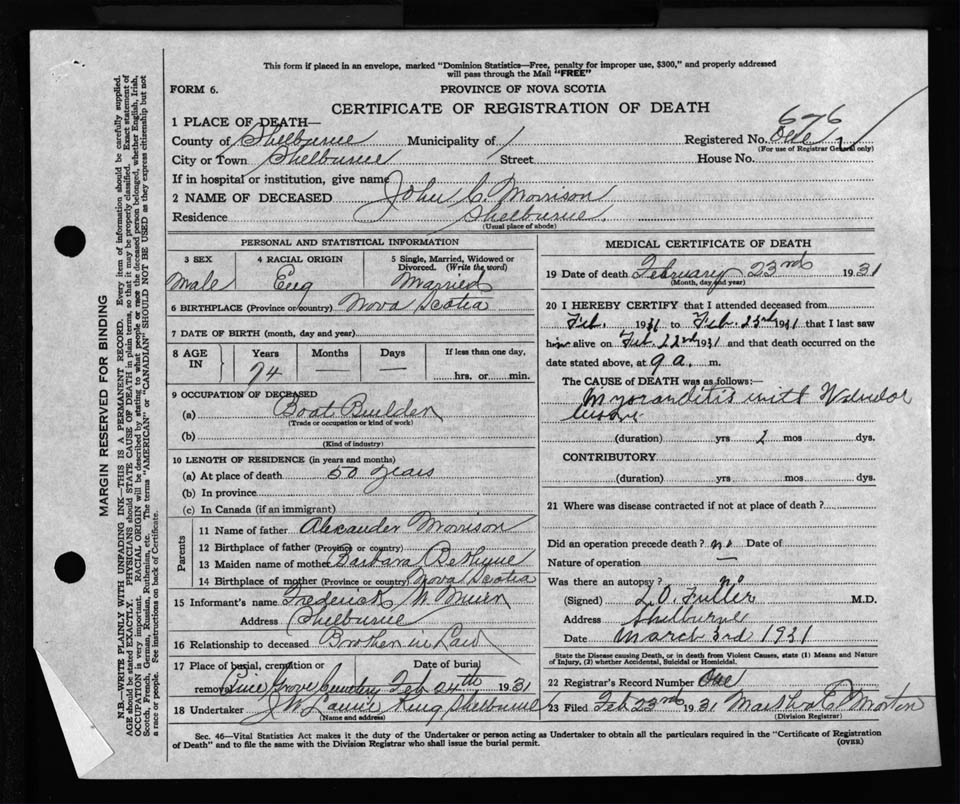 This form if placed in an envelope, marked "Dominion Statistics—Free, penalty for improper use, $300," and properly addressed
will pass through the Mail "FREE"
FORM 6.
PROVINCE OF NOVA SCOTIA
CERTIFICATE OF REGISTRATION OF DEATH
676
1 PLACE OF DEATH—
County of Shelburne Municipality of Registered No.
(For use of Registrar General only)
City or Town Shelburne Street House No.
If in hospital or institution, give name
2 NAME OF DECEASED John C. Morrison
Residence Shelburne.
(Usual place of abode)
PERSONAL AND STATISTICAL INFORMATION
3 SEX 4 RACIAL ORIGIN 5 Single, Married, Widowed or
Divorced. (Write the word)
Male Eng Married
6 BIRTHPLACE (Province or country) Nova Scotia
7 DATE OF BIRTH (month, day and year)
8 AGE IN Years Months Days If less than one day,
74 — — hrs. or min.
9 OCCUPATION OF DECEASED
(a) Boat Builder
(Trade or occupation or kind of work)
(b)
(Kind of industry)
10 LENGTH OF RESIDENCE (in years and months)
(a) At place of death 50 years
(b) In province
(c) In Canada (if an immigrant)
Parents
11 Name of father Alexander Morrison
12 Birthplace of father (Province or country)
13 Maiden name of mother Barbara Bethune
14 Birthplace of mother (Province or country) Nova Scotia
15 Informant's name Frederick W.
Address Shelburne
16 Relationship to deceased Brother in Law
17 Place of burial, cremation or Date of burial
removal Pine Grove Cemetery Feb 24th 1931
18 Undertaker King Shelburne
(Name and address)
MEDICAL CERTIFICATE OF DEATH
19 Date of death February 23rd 1931
(Month, day and year)
20 I HEREBY CERTIFY that I attended deceased from
Feb. 1931 to Feb. 23rd 1931 that I last saw
him alive on Feb. 22nd 1931 and that death occurred on the
date stated above, at 9 a. m.
The CAUSE of DEATH was as follows:—
with
(duration) yrs 2 mos dys.
CONTRIBUTORY
(duration) yrs mos dys.
21 Where was disease contracted if not at place of death?
Did an operation precede death? no Date of
Nature of operation —
Was there an autopsy? no
(Signed) L.O. Fuller M.D.
Address Shelburne
Date March 3rd 1931
State the Disease causing Death, or in death from Violent Causes, state (1) Means and Nature
of Injury, (2) whether Accidental, Suicidal or Homicidal.
22 Registrar's Record Number One
23 Filed Feb 23rd 1931 Martha C. Morton
(Division Registrar)
Sec. 46—Vital Statistics Act makes it the duty of the Undertaker or person acting as Undertaker to obtain all the particulars required in the "Certificate of Registration
of Death" and to file the same with the Division Registrar who shall issue the burial permit.
(OVER)
MARGIN RESERVED FOR BINDING
N.B.—WRITE PLAINLY WITH UNFADING INK—THIS IS A PERMANENT RECORD. Every item of information should be carefully supplied.
AGE should be stated EXACTLY. PHYSICIANS should STATE CAUSE OF DEATH in plain terms, so that it may be properly classified. Exact statement of
OCCUPATION is very important. RACIAL ORIGIN will be described by stating to what people or race the deceased person belonged, whether English, Irish,
Scotch, French, German, Russian, Ruthenian, etc. The terms "AMERICAN" or "CANADIAN" SHOULD NOT BE USED as they express citizenship but not
a race or people. See instructions on back of Certificate.